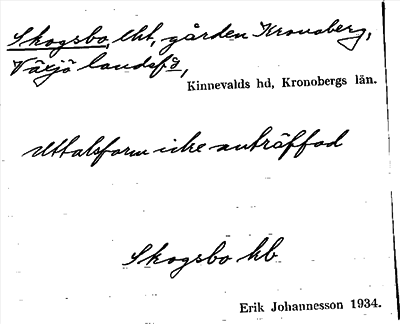 Skogsbo, lht, gården Kronoberg,
Växjö landsfg,
Kinnevalds hd, Kronobergs län.
Uttalsform icke anträffad
Skogsbo hb
Erik Johannesson 1934.